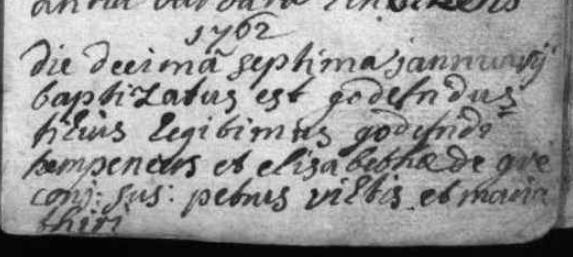 1762
die decimâ septima jannuarij
baptizatus est godefridus
filius legitimus godefridi
hempeneers et elisabethæ de gré
conj: sus: petrus viltis et maria
thiri